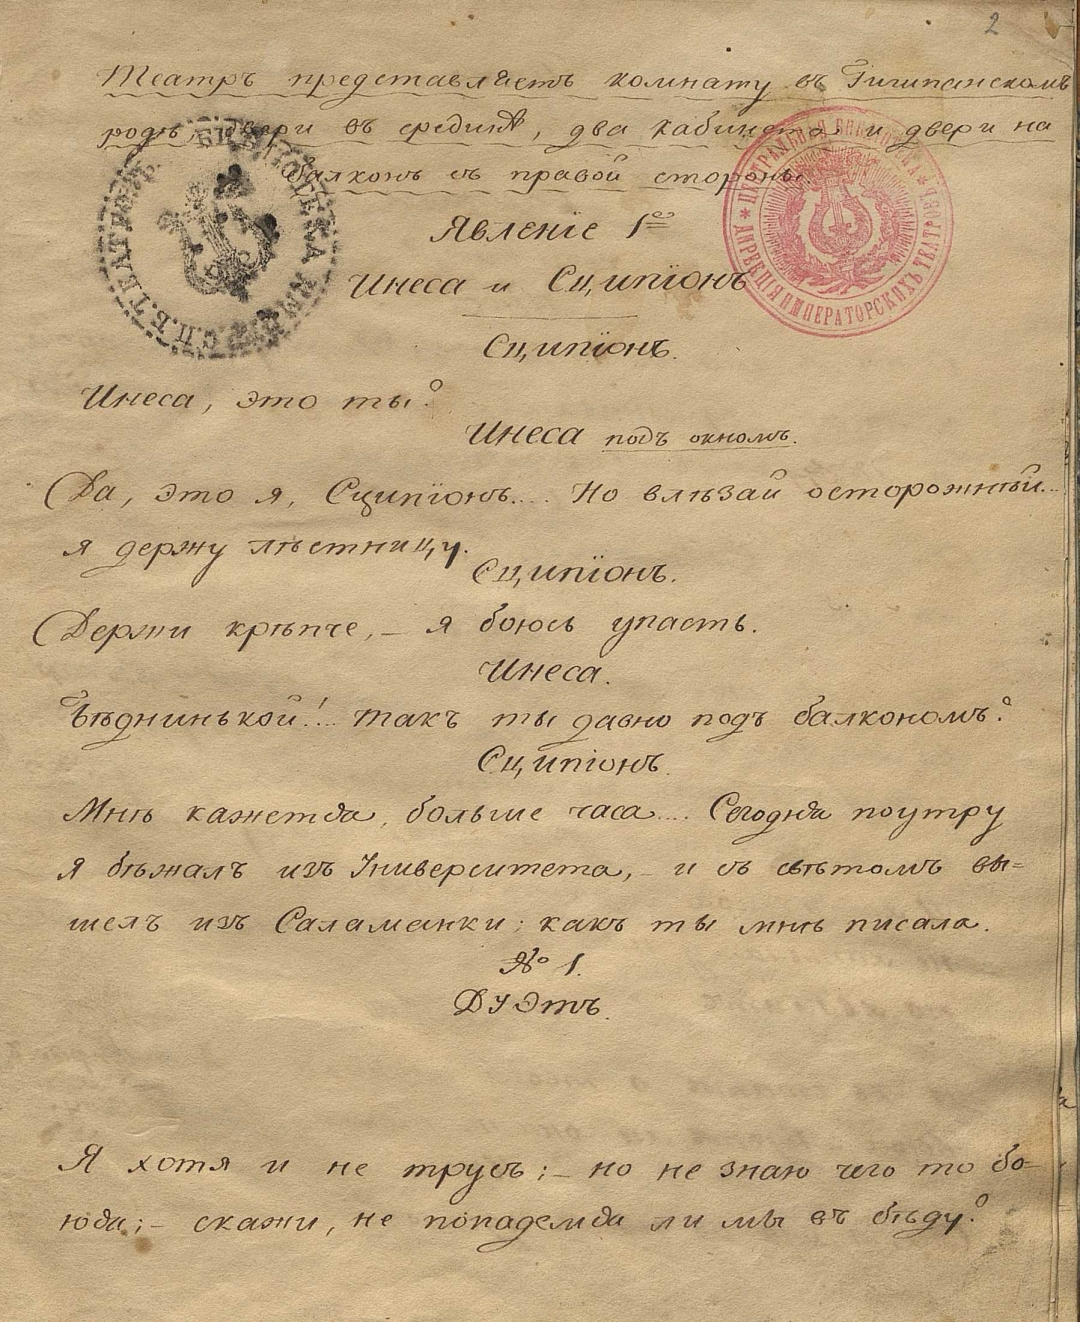 2
Театръ представляетъ комнату въ Гишпанскомъ
родѣ, двери въ срединѣ, два кабинета и двери на
балконъ съ правой стороны.
БИБЛІОТЕКА ИМПЕР. С.П.Б. ТЕАТРОВЪ
ЦЕНТРАЛЬНАЯ БИБЛІОТЕКА * ДИРЕКЦІЯ ИМПЕРАТОРСКИХЪ ТЕАТРОВЪ *
Явленіе 1ое
Инеса и Сципіонъ
Сципіонъ.
Инеса, это ты?
Инеса подъ окномъ.
Да, это я, Сципіонъ.... Но влѣзай осторожнѣй...
я держу лѣстницу.
Сципіонъ.
Держи крѣпче, – я боюсь упасть.
Инеса.
Бѣднинькой!... такъ ты давно подъ балкономъ?
Сципіонъ.
Мнѣ кажется, больше часа.... Сегодня поутру
я бѣжалъ изъ Университета, – и съ свѣтомъ вы=
шелъ изъ Саламанки; какъ ты мнѣ писала.
№ 1.
Дуэтъ.
Я хотя и не трусъ; – но не знаю чего то бо=
юся; – скажи, не попадемся ли мы въ бѣду?